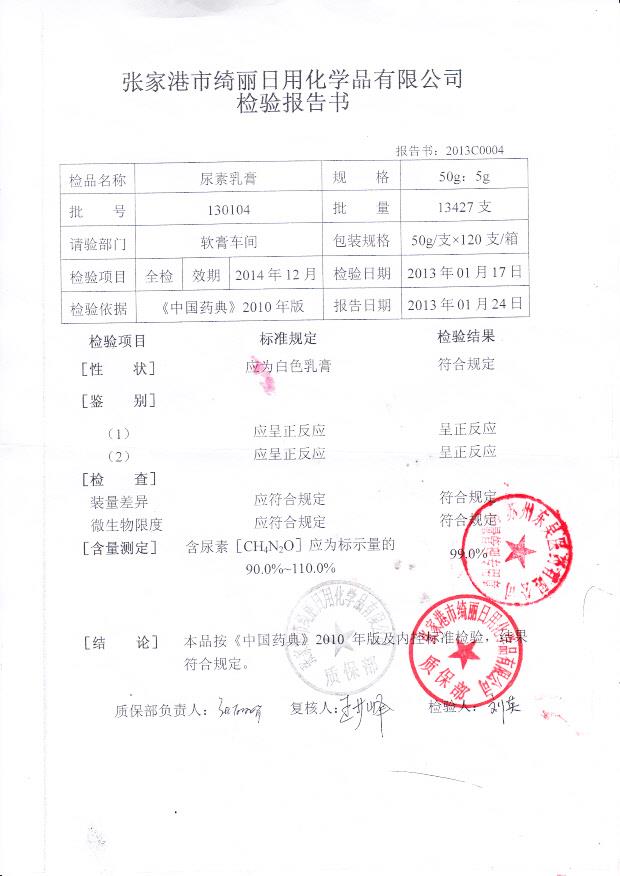 张家港市绮丽日用化学品有限公司
检验报告书
报告书：2013C0004
检品名称 尿素乳膏 规 格 50g：5g
批 号 130104 批 量 13427 支
请验部门 软膏车间 包装规格 50g/支×120 支/箱
检验项目 全检 效期 2014 年 12 月 检验日期 2013 年 01 月 17 日
检验依据 《中国药典》2010 年版 报告日期 2013 年 01 月 24 日
检验项目 标准规定 检验结果
［性 状］ 应为白色乳膏 符合规定
［鉴 别］
（1） 应呈正反应 呈正反应
（2） 应呈正反应 呈正反应
［检 查］
装量差异 应符合规定 符合规定
微生物限度 应符合规定 符合规定
［含量测定］ 含尿素［CH4N2O］应为标示量的 99.0%
90.0%~110.0%
［结 论］ 本品按《中国药典》2010 年版及内控标准检验，结果
符合规定。
张家港市绮丽日用化学品有限公司
质保部
张家港市绮丽日用化学品有限公司
质保部
质保部负责人： 复核人： 检验人：刘英